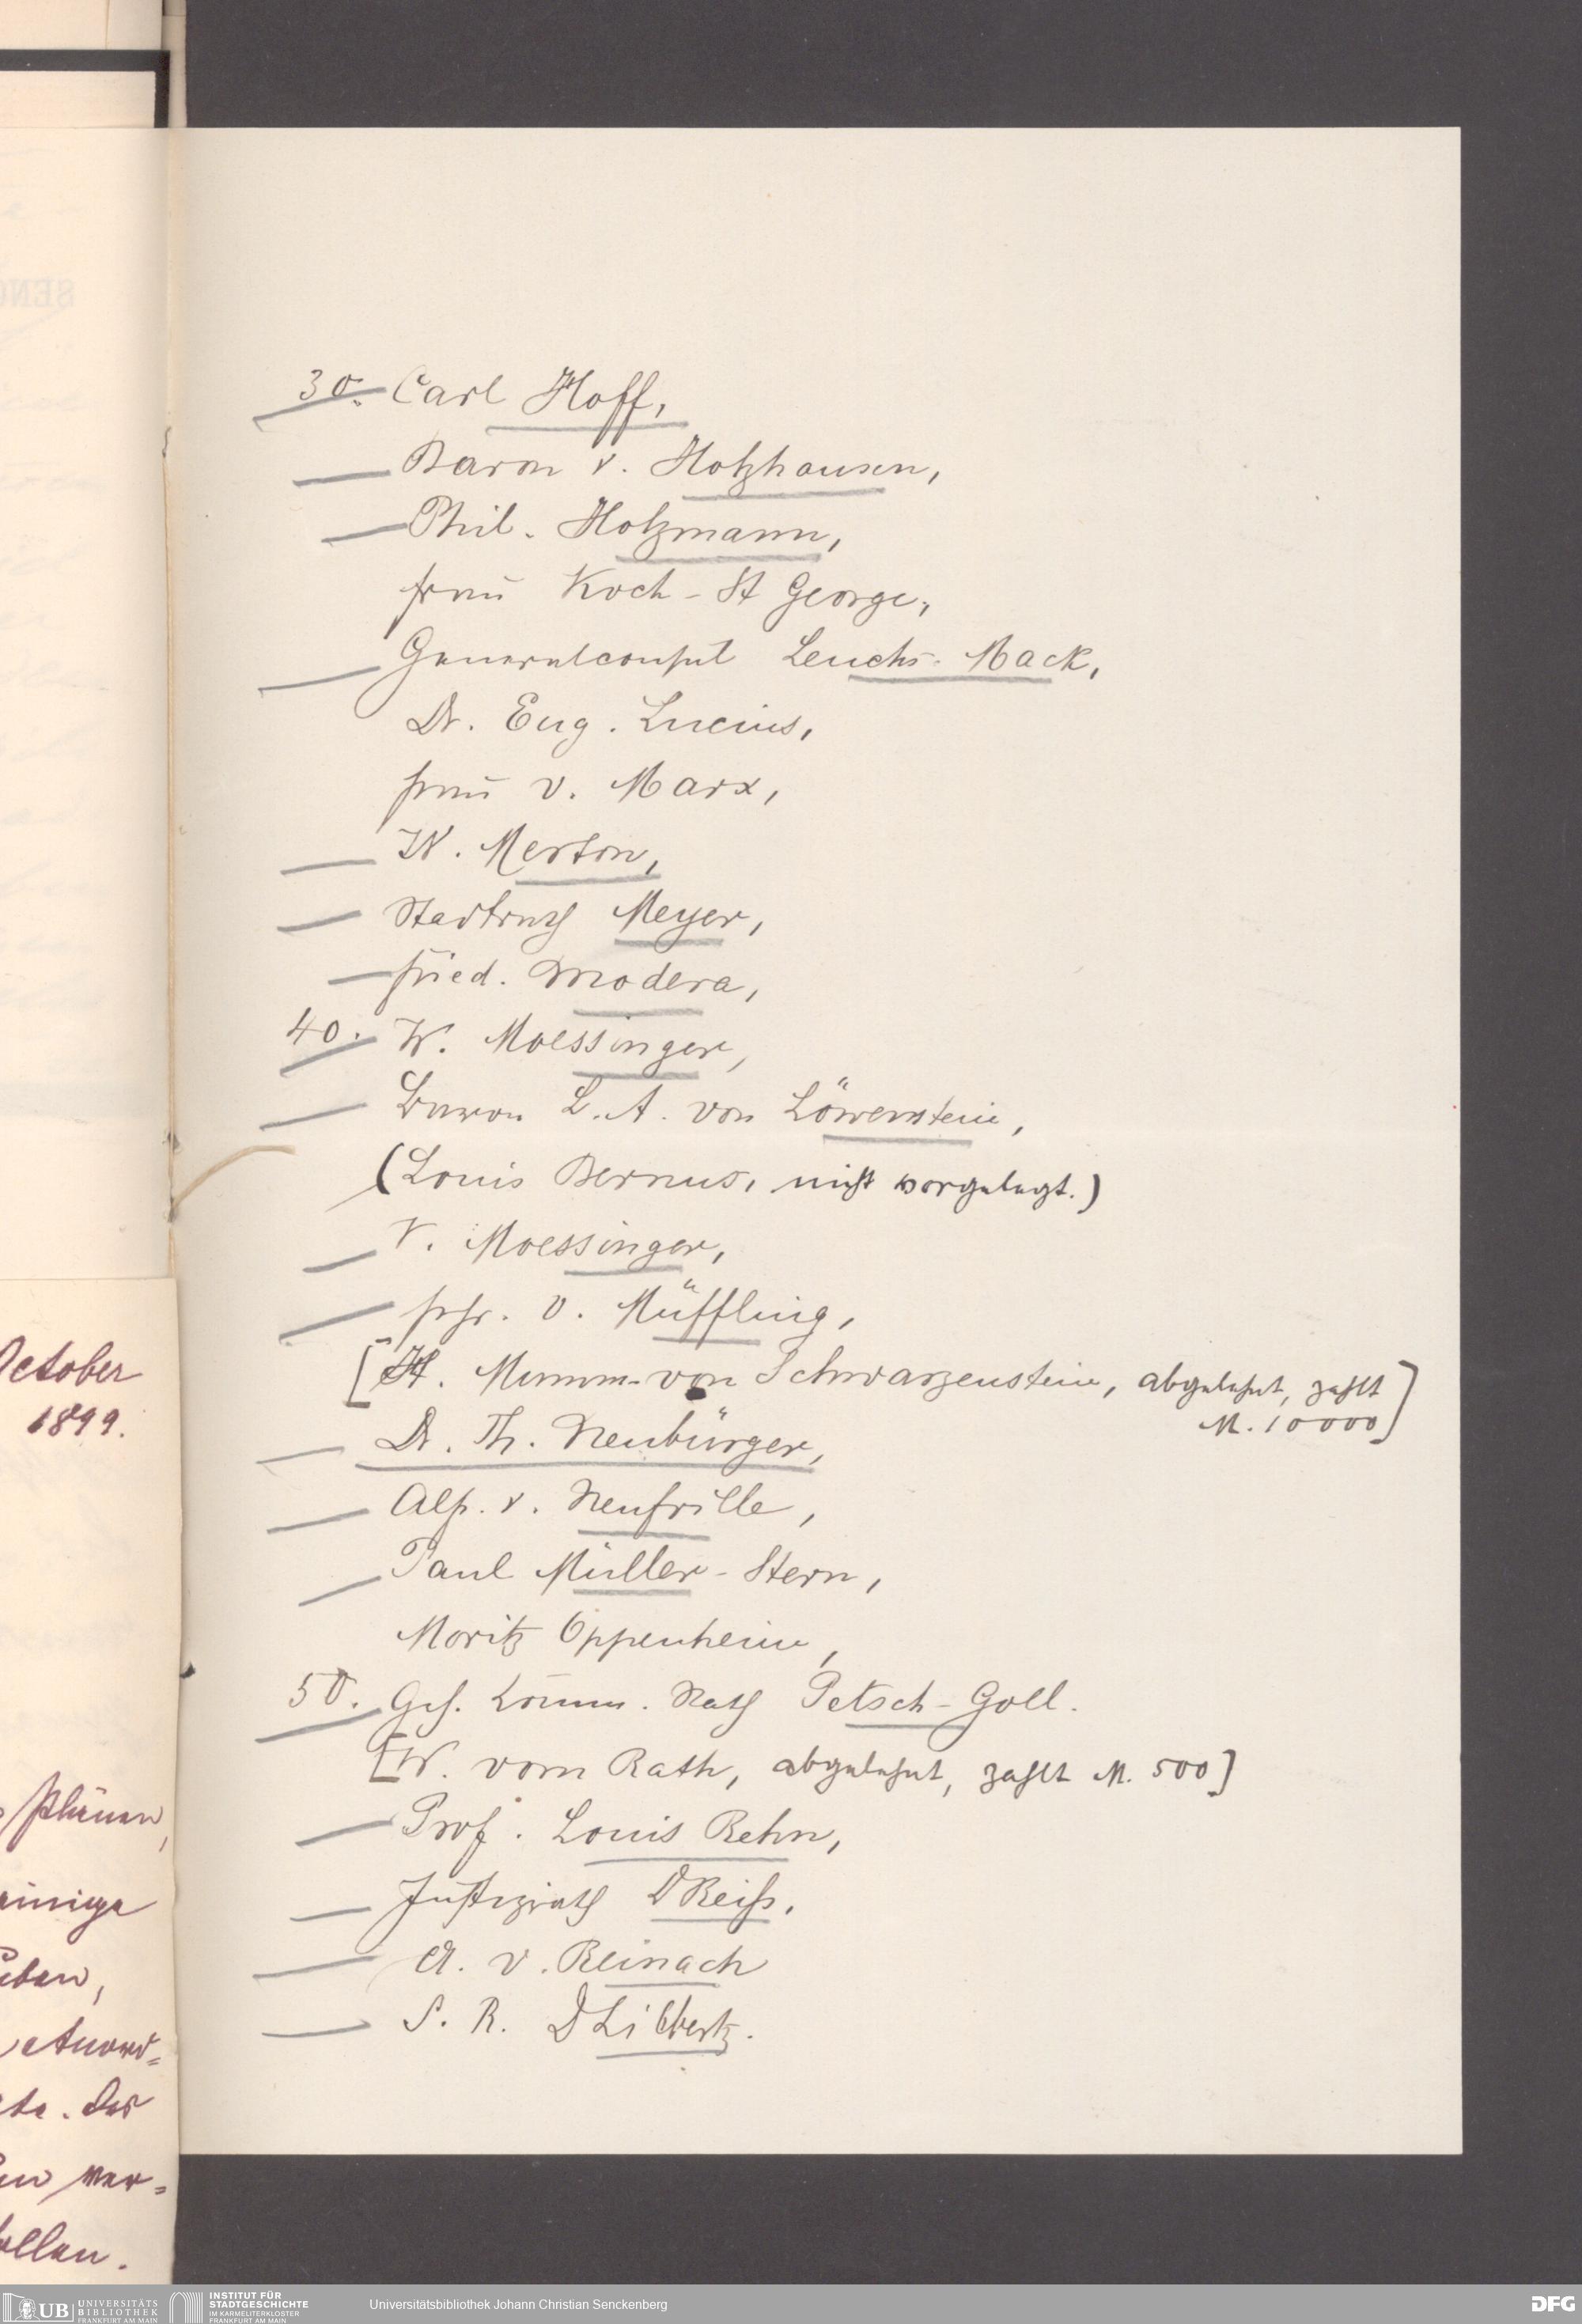 30. Carl Hoff,
Baron v. Holzhausen,
Phil. Holzmann,
Frau Koch-St George,
Generalconsul Leuchs-Mack,
Dr. Eug. Lucius,
Frau v. Marx,
W. Merton,
Stadtrath Meyer,
Fried. Modera,
40. W. Moessinger,
Baron L. A. von Löwenstein,
(Louis Bernus, nicht vorgelegt.)
V. Moessinger,
Frhr. v. Müffling,
[H. Mumm-von Schwarzenstein, abgelehnt, zahlt
M. 10000]
Dr. Th. Neubürger,
Alf. v. Neufville,
Paul Müller-Stern,
Moritz Oppenheim,
50. Geh. Comm. Rath Petsch-Goll.
[W. vom Rath, abgelehnt, zahlt M. 500]
Prof. Louis Rehn,
Justizrath D Reiß,
A. v. Reinach
S. R. D Libbertz.
October
1899.
Plänen,
einige
eben,
Anord=
te. Das
ver=
ollen.
UB UNIVERSITÄTS
BIBLIOTHEK
FRANKFURT AM MAIN
INSTITUT FÜR
STADTGESCHICHTE
IM KARMELITERKLOSTER
FRANKFURT AM MAIN
Universitätsbibliothek Johann Christian Senckenberg
DFG